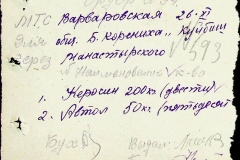 МТС Варваровская 26-XI
для общ. Б. Корениха, Куйбиш
через манастырского 593
Наименование к-во
1. Керосин 200кг (двести)
2. Автол 50кг (пятьдесят
Бух
Выдал: